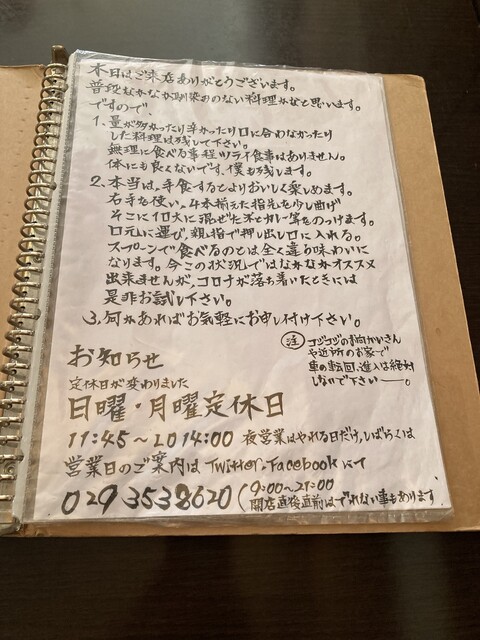 本日はご来店ありがとうございます。
普段なかなか馴染みのない料理かなと思います。
ですので、
1. 量が多かったり辛かったり口に合わなかったり
した料理は残して下さい。
無理に食べる事程ツライ食事はありません。
体にも良くないです、僕も残します。
2. 本当は、手食するとよりおいしく楽しめます。
右手を使い、4本揃えた指先を少し曲げ
そこに1口大に混ぜた米とカレー等をのっけます。
口元に運び、親指で押し出し口に入れる。
スプーンで食べるのとは全く違う味わいに
なります。今この状況ではなかなかオススメ
出来ませんが、コロナが落ち着いたときには
是非お試し下さい。
3. 何かあればお気軽にお申し付け下さい。
注 コジコジのお向かいさん
や近所のお家で
車の転回、進入は絶対
しないで下さいー。
お知らせ
定休日が変わりました
日曜・月曜定休日
11:45〜LO14:00 夜営業はやれる日だけ、しばらくは
営業日のご案内は Twitter・Facebookにて
029 3538620 (9:00〜21:00
開店直後直前はでれない事もあります